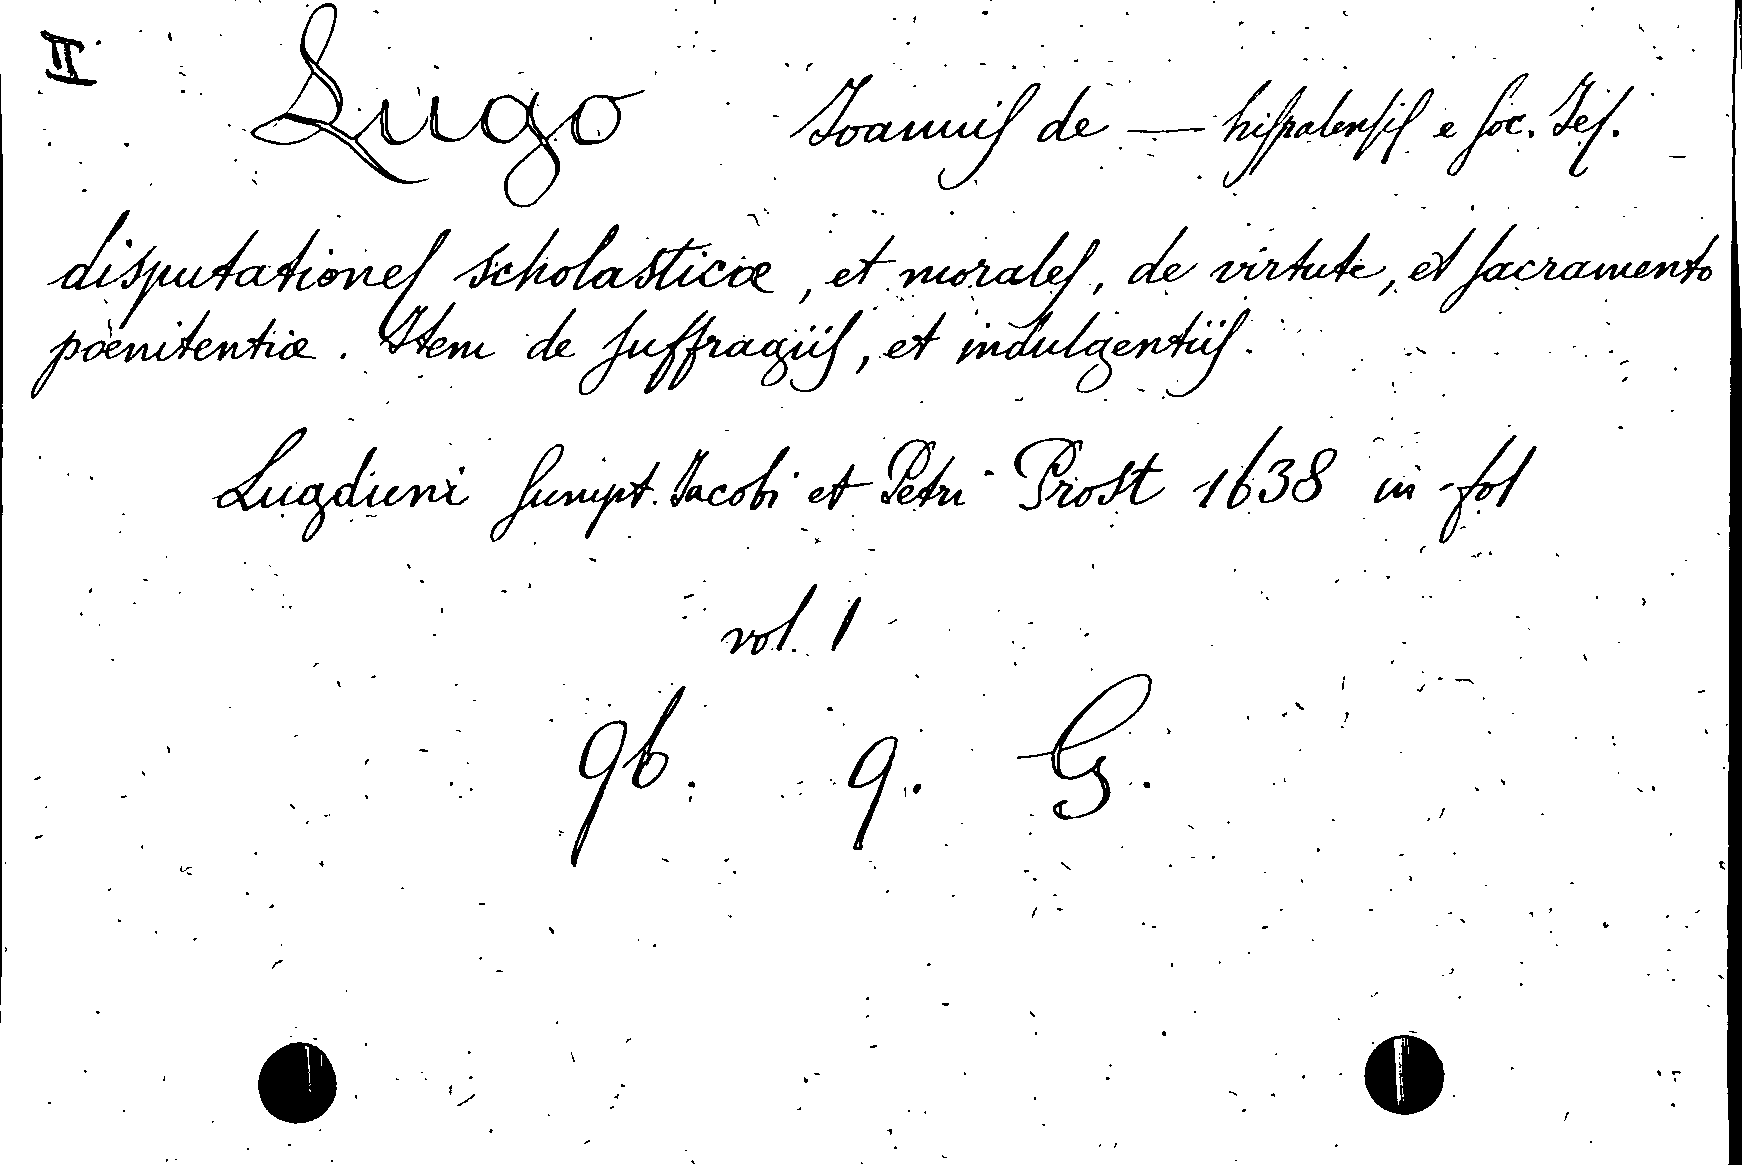 II Lugo Ioannis de — hispalensis e Soc. Ies.
disputationes scholasticæ, et morales, de virtute, et sacramento
pœnitentiæ. Item de suffragiis, et indulgentiis.
Lugduni sumpt. Iacobi et Petri Prost 1638 in-fol
vol. 1
96. 9. G.